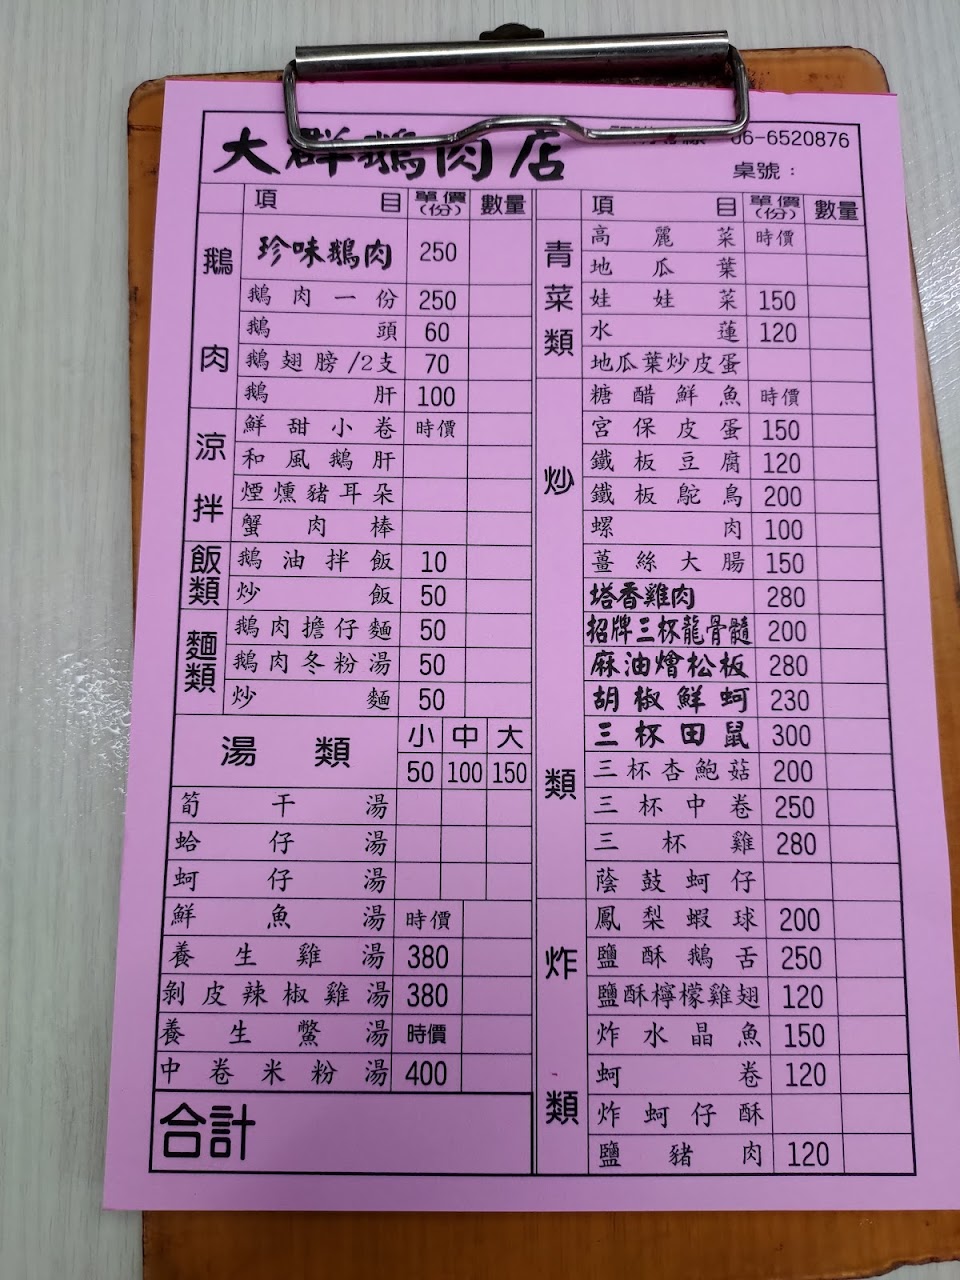 大群鵝肉店
06-6520876
桌號：
項目 單價(份) 數量
鵝肉
珍味鵝肉 250
鵝肉一份 250
鵝頭 60
鵝翅膀/2支 70
鵝肝 100
涼拌
鮮甜小卷 時價
和風鵝肝
煙燻豬耳朵
蟹肉棒
飯類
鵝油拌飯 10
炒飯 50
麵類
鵝肉擔仔麵 50
鵝肉冬粉湯 50
炒麵 50
湯類 小 中 大
50 100 150
筍干湯
蛤仔湯
蚵仔湯
鮮魚湯 時價
養生雞湯 380
剝皮辣椒雞湯 380
養生鱉湯 時價
中卷米粉湯 400
合計
項目 單價(份) 數量
青菜類
高麗菜 時價
地瓜葉
娃娃菜 150
水蓮 120
地瓜葉炒皮蛋
炒類
糖醋鮮魚 時價
宮保皮蛋 150
鐵板豆腐 120
鐵板鴕鳥 200
螺肉 100
薑絲大腸 150
塔香雞肉 280
招牌三杯龍骨髓 200
麻油燴松板 280
胡椒鮮蚵 230
三杯田鼠 300
三杯杏鮑菇 200
三杯中卷 250
三杯雞 280
蔭鼓蚵仔
炸類
鳳梨蝦球 200
鹽酥鵝舌 250
鹽酥檸檬雞翅 120
炸水晶魚 150
蚵卷 120
炸蚵仔酥
鹽豬肉 120